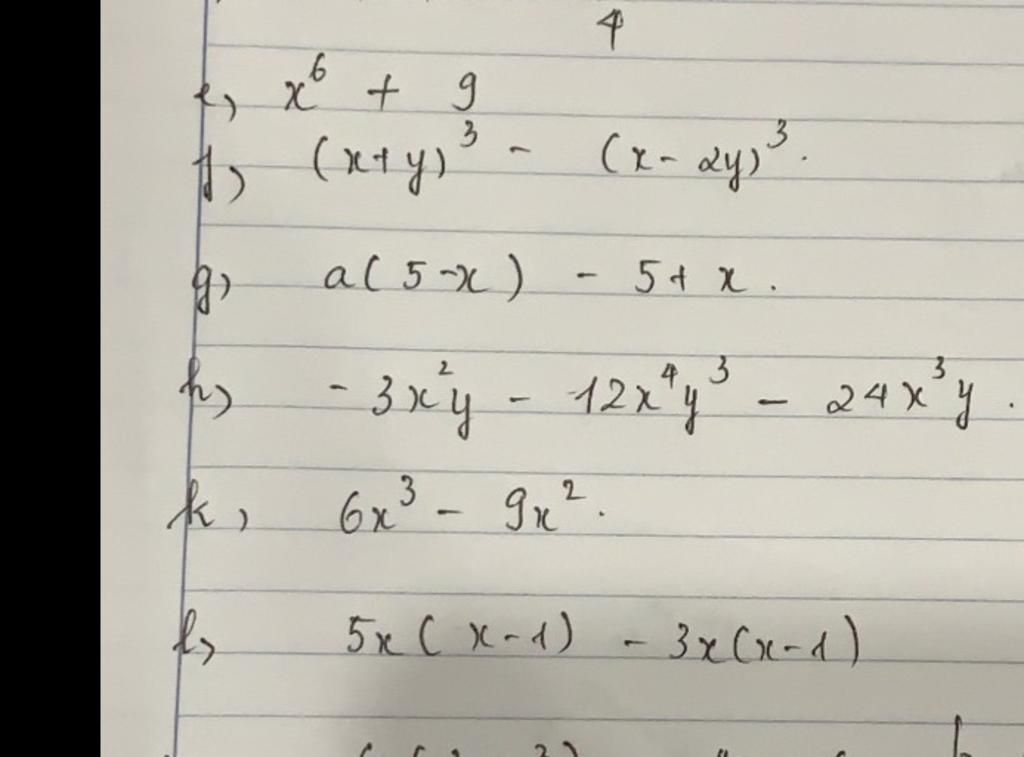 4
e, x⁶ + 9
f, (x+y)³ - (x- 2y)³.
g, a( 5-x) - 5+ x.
h, - 3x²y - 12x⁴y³ - 24x³y.
k, 6x³ - 9x².
l, 5x( x-1) - 3x(x-1)